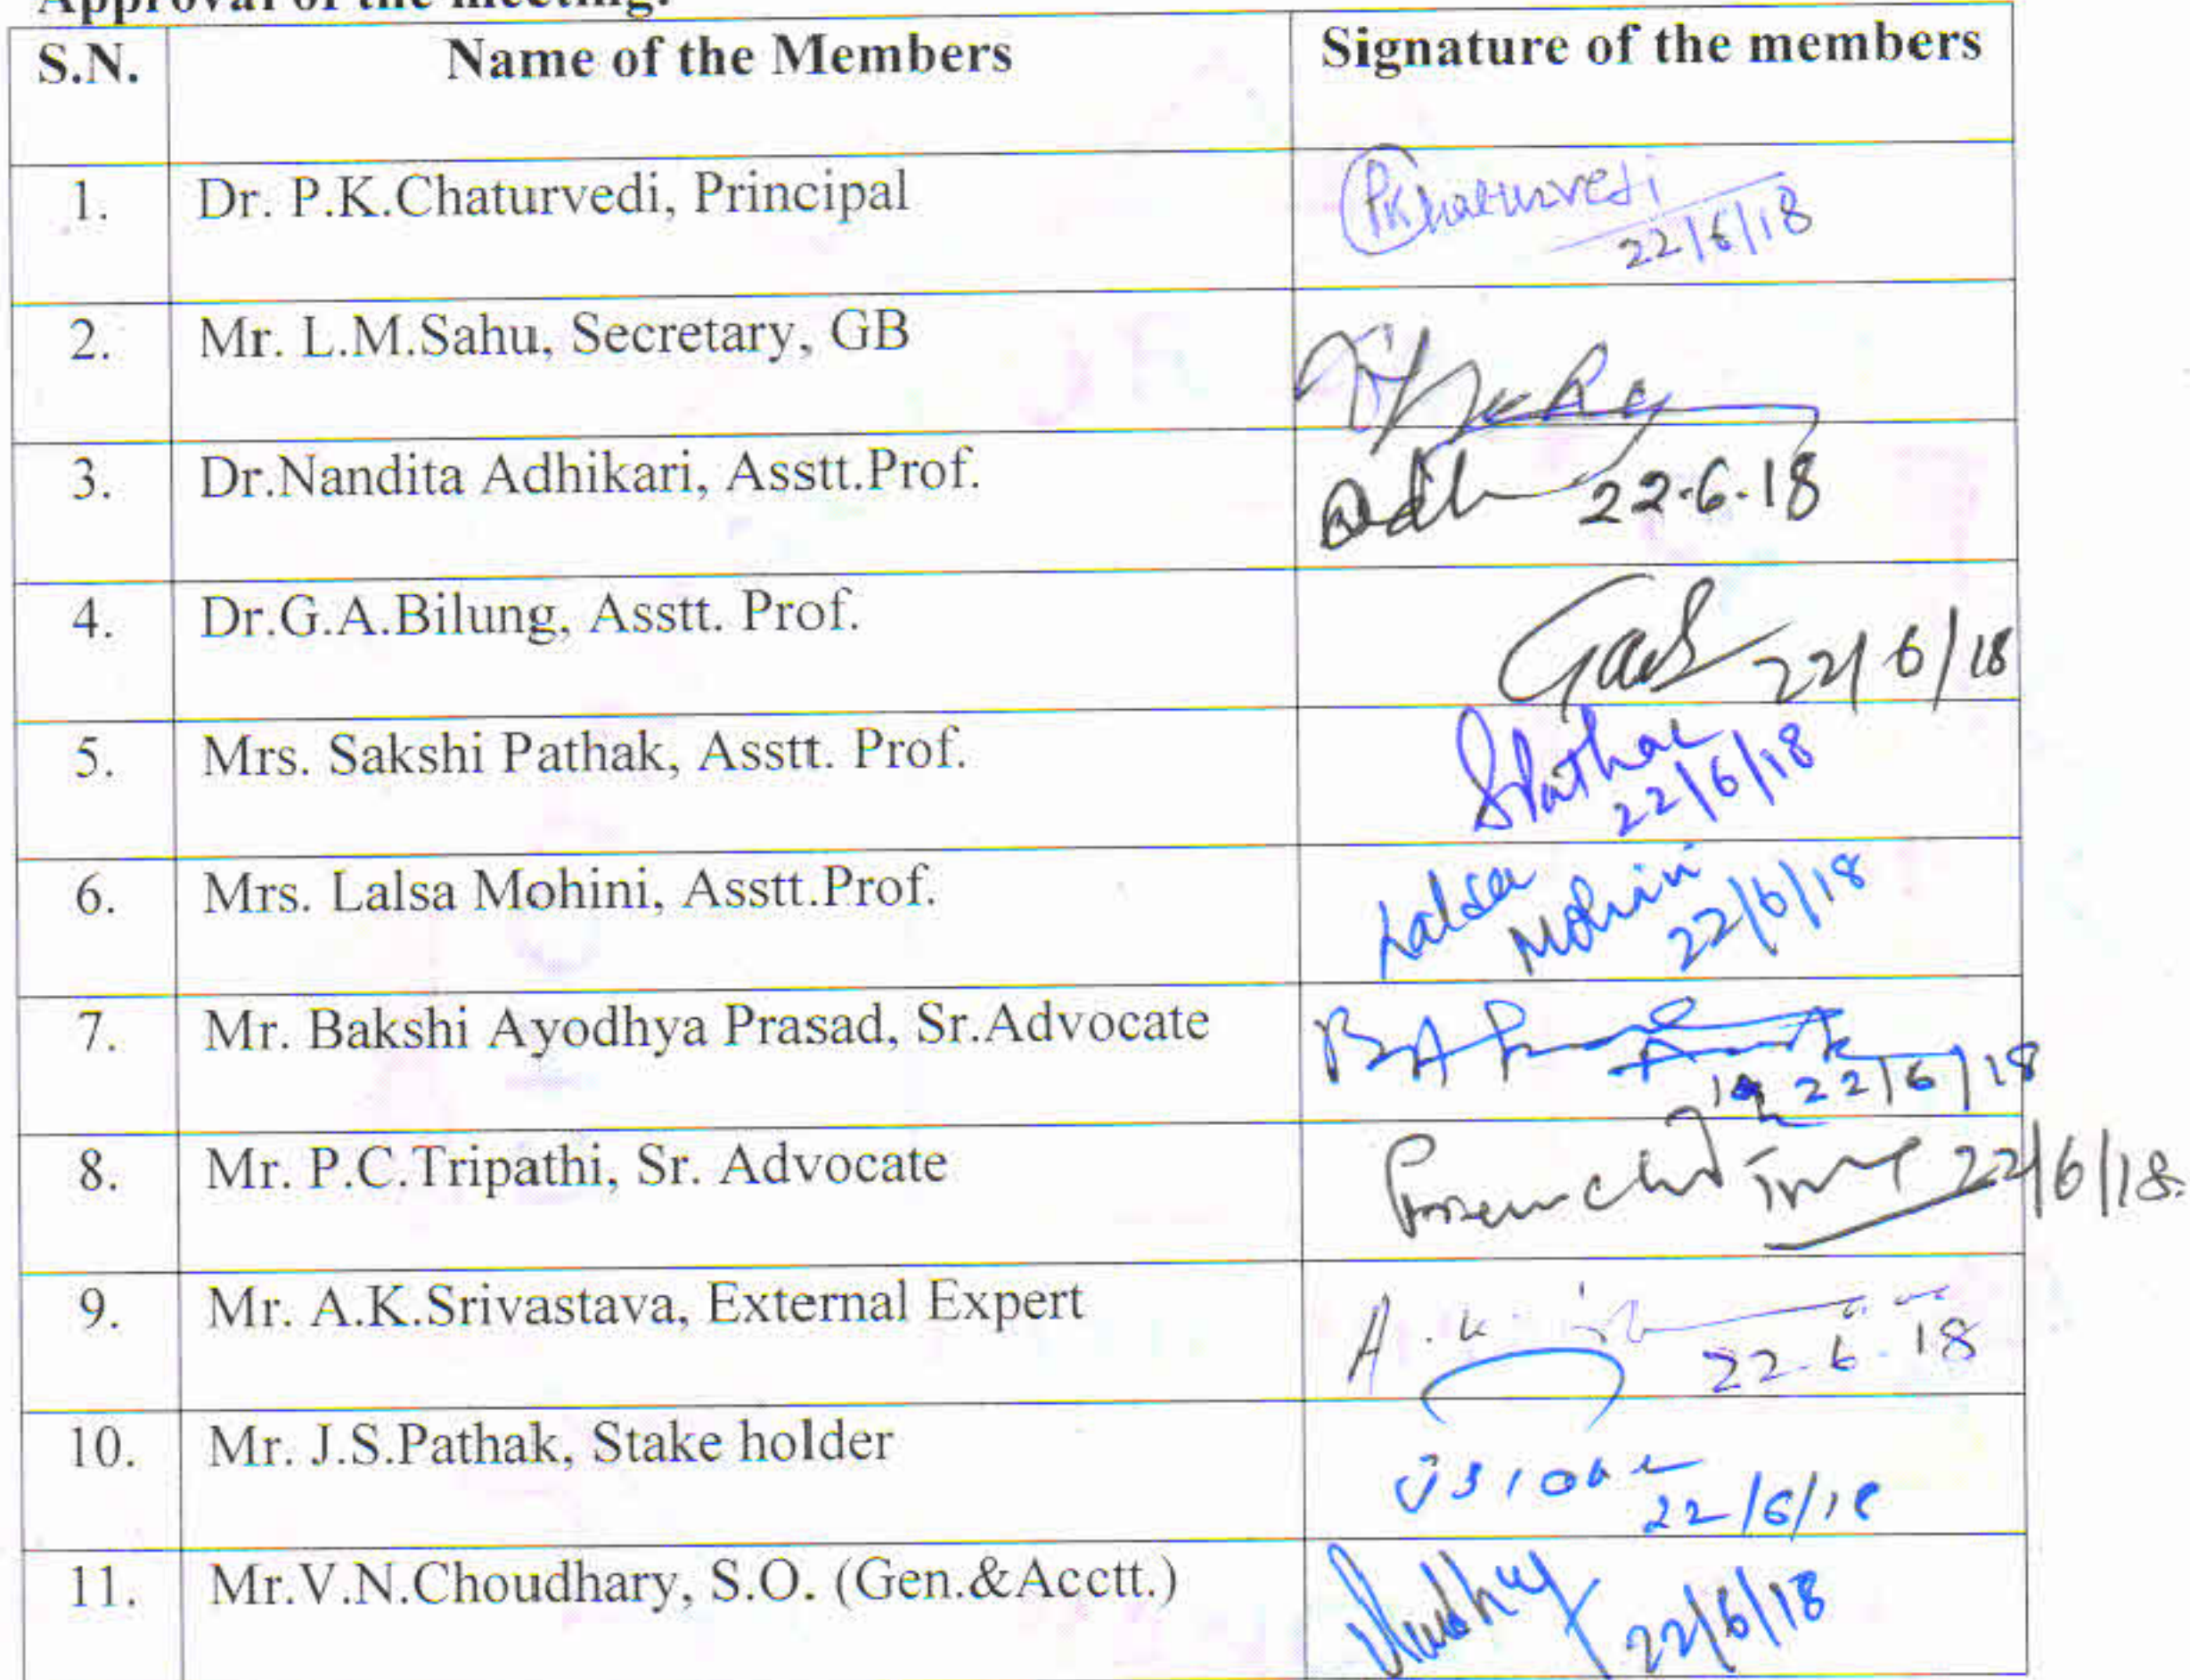 Approval of the meeting:
S.N. Name of the Members Signature of the members
1. Dr. P.K.Chaturvedi, Principal PKChaturvedi
22/6/18
2. Mr. L.M.Sahu, Secretary, GB
3. Dr.Nandita Adhikari, Asstt.Prof. 22.6.18
4. Dr.G.A.Bilung, Asstt. Prof. 22/6/18
5. Mrs. Sakshi Pathak, Asstt. Prof. SPathak
22/6/18
6. Mrs. Lalsa Mohini, Asstt.Prof. Lalsa
Mohini
22/6/18
7. Mr. Bakshi Ayodhya Prasad, Sr.Advocate
22/6/18
8. Mr. P.C.Tripathi, Sr. Advocate 22/6/18.
9. Mr. A.K.Srivastava, External Expert A.K.
22-6-18
10. Mr. J.S.Pathak, Stake holder
22/6/18
11. Mr.V.N.Choudhary, S.O. (Gen.&Acctt.)
22/6/18